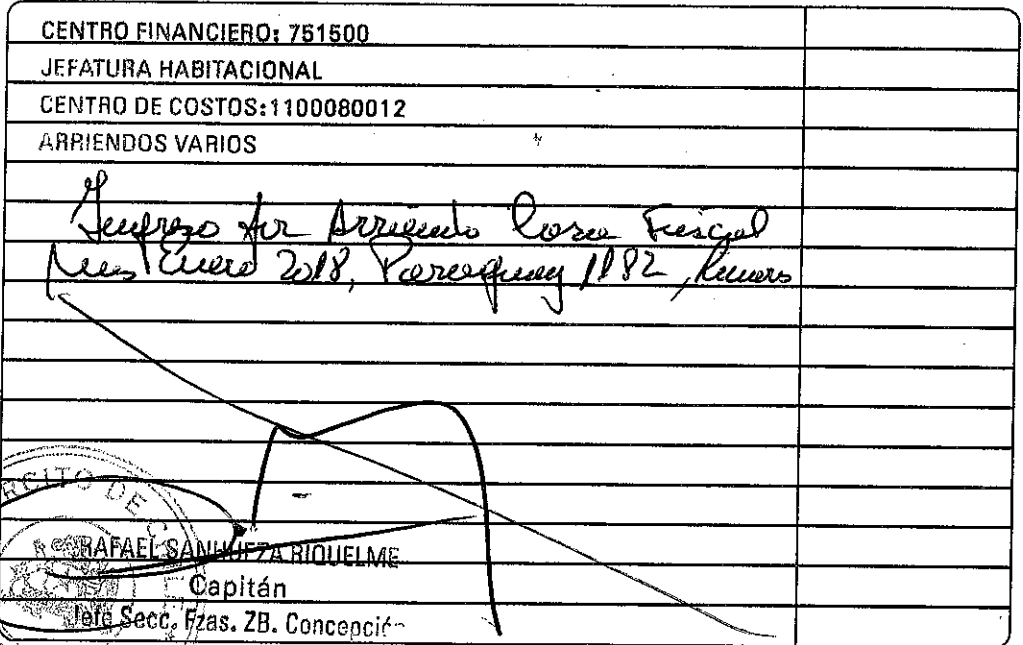 CENTRO FINANCIERO: 751500
JEFATURA HABITACIONAL
CENTRO DE COSTOS:1100080012
ARRIENDOS VARIOS
Ingreso por Arriendo Casa Fiscal
Mes Enero 2018, Paraguay 1182,
RCITO DE
RAFAEL SANHUEZA RIQUELME
Capitán
Jefe Secc. Fzas. ZB. Concepción